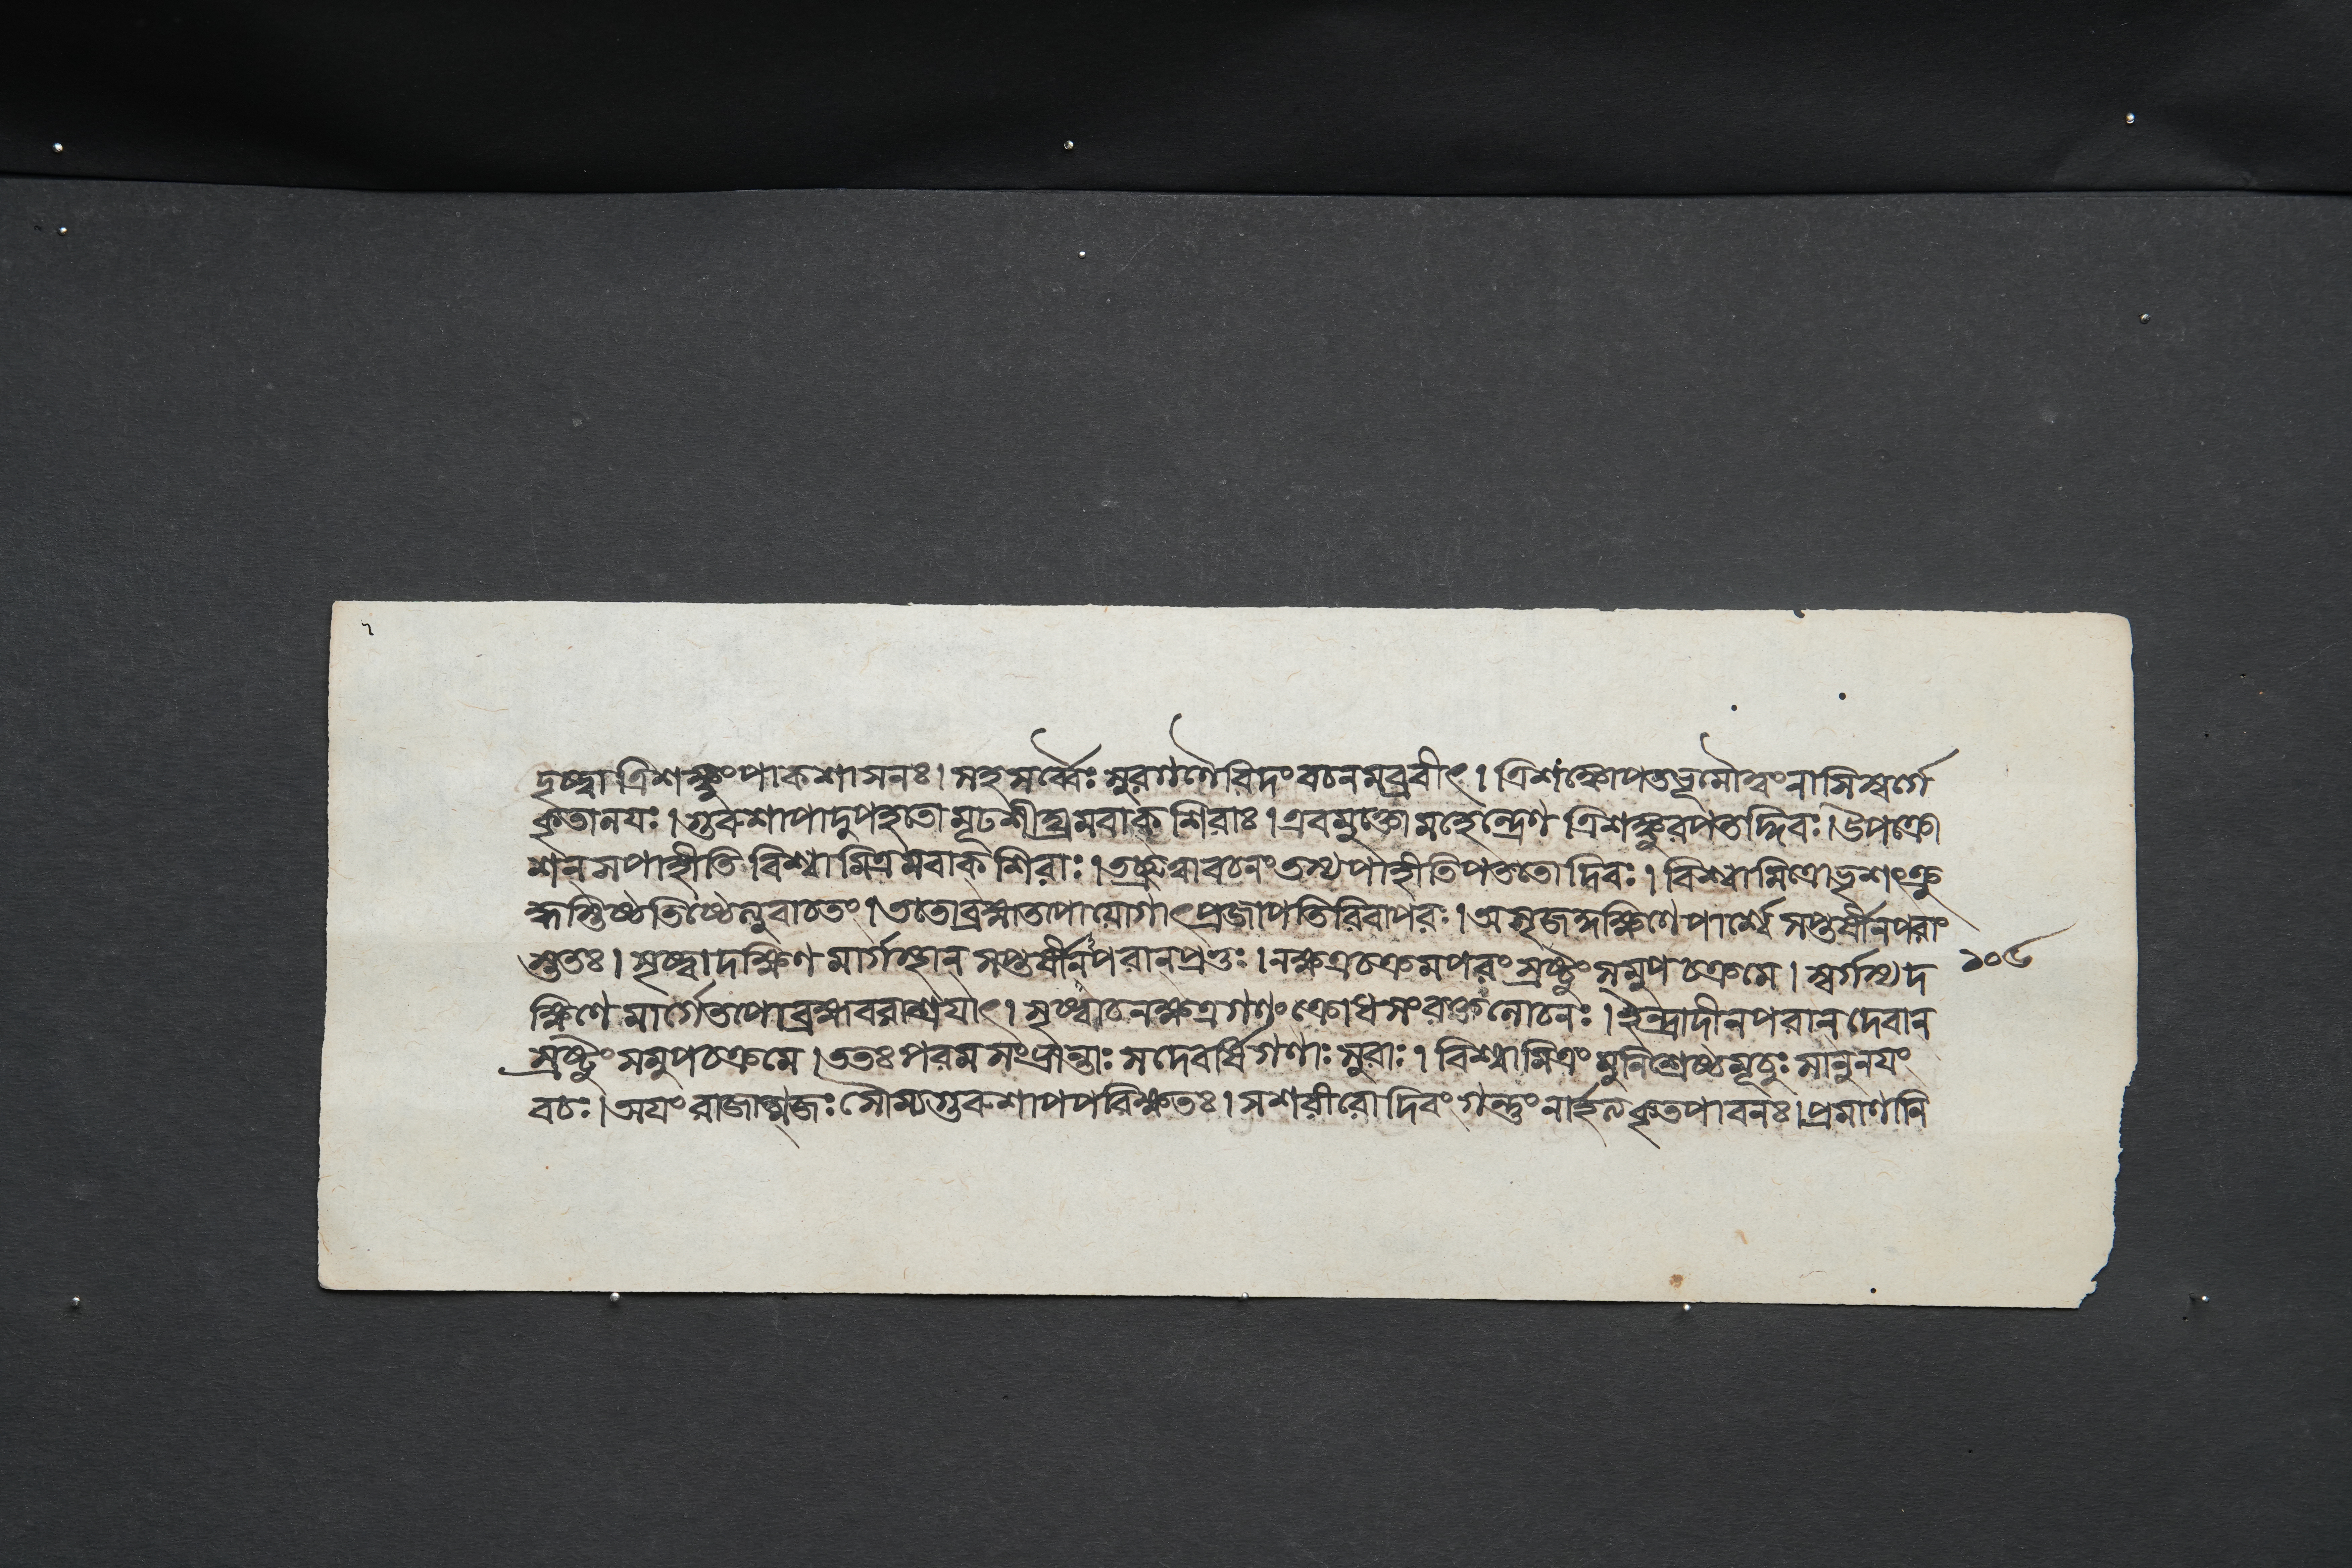 দৃষ্ট্বা ত্রিশঙ্কুং পাকশাসনঃ। সহ সর্ব্বৈঃ সুরগণৈরিদং বচনমব্রবীৎ। ত্রিশঙ্কোপতভূমৌত্বংনাসিস্বর্গে
কৃতানয়ঃ। গুরুশাপাদুপহতো মূঢশীঘ্রমবাক্ শিরাঃ। এবমুক্তো মহেন্দ্রেণ ত্রিশঙ্কুরপতদ্দিবঃ। উপক্রো
শন্ সপাহীতি বিশ্বামিত্রমবাক্ শিরাঃ। তচ্ছ্রুত্বাবচনং তস্য পাহীতিপততো দিবঃ। বিশ্বামিত্রোভৃশংক্রু
দ্ধস্তিষ্ঠতিষ্ঠেত্যুবাচতং। ততোব্রহ্মতপোযোগাৎপ্রজাপতিরিবাপরঃ। অসৃজদ্দক্ষিণেপার্শ্বে সপ্তর্ষীনপরাং
স্ততঃ। সৃষ্ট্বা দক্ষিণ মার্গস্থান্ সপ্তর্ষীনপরানপ্রভুঃ। নক্ষত্রচক্রমপরং স্রষ্টুং সমুপচক্রমে। স্বর্গস্য দ ১০৫
ক্ষিণে মার্গেতপোব্রহ্মবরাশ্রয়াৎ। সৃষ্ট্বাচনক্ষত্রগণং ক্রোধসংরক্তলোচনঃ। ইন্দ্রাদীনপরান্ দেবান্
স্রষ্টুং সমুপচক্রমে। ততঃ পরমসংভ্রান্তাঃ সদেবর্ষিগণাঃ সুরাঃ। বিশ্বামিত্রং মুনিশ্রেষ্ঠমূচুঃ সানুনয়ং
বচঃ। অয়ং রাজাত্মজঃ সৌম্য গুরুশাপপরিক্ষতঃ। সশরীরো দিবং গন্তুং নার্হত্যকৃতপাবনঃ। প্রমাণানি